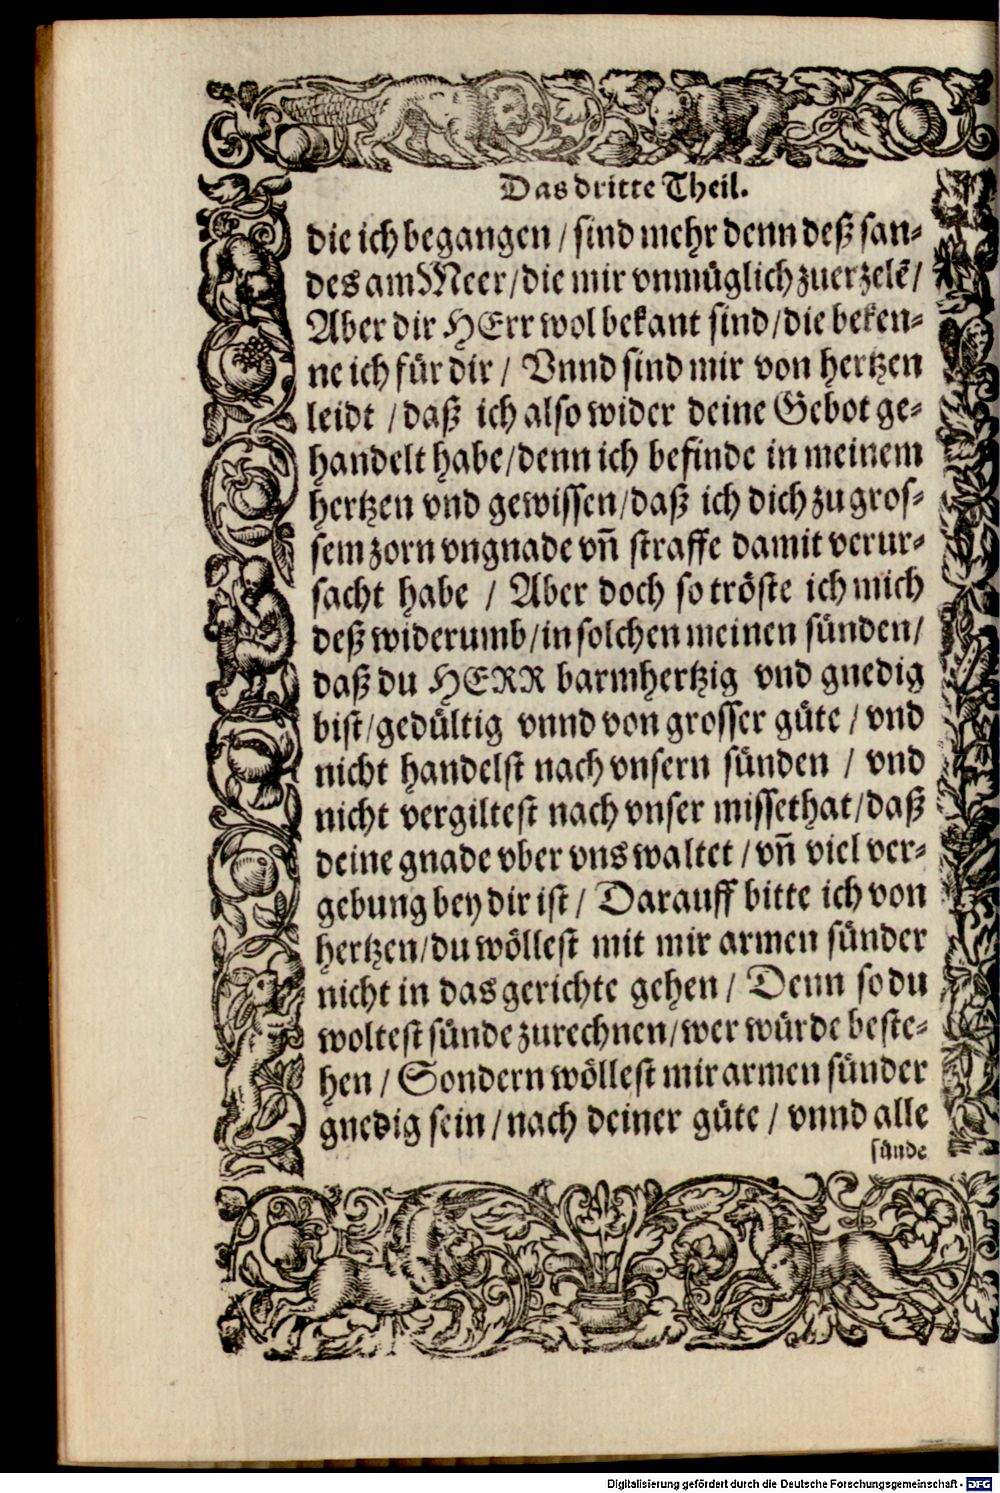 Das dritte Theil.
die ich begangen / sind mehr denn deß san-
des am Meer / die mir vnmüglich zuerzelē /
Aber dir HErr wol bekant sind / die beken-
ne ich für dir / Vnnd sind mir von hertzen
leidt / daß ich also wider deine Gebot ge-
handelt habe / denn ich befinde in meinem
hertzen vnd gewissen / daß ich dich zu gros-
sem zorn vngnade vñ straffe damit verur-
sacht habe / Aber doch so tröste ich mich
deß widerumb / in solchen meinen sünden /
daß du HERR barmhertzig vnd gnedig
bist / gedültig vnnd von grosser güte / vnd
nicht handelst nach vnsern sünden / vnd
nicht vergiltest nach vnser missethat / daß
deine gnade vber vns waltet / vñ viel ver-
gebung bey dir ist / Darauff bitte ich von
hertzen / du wöllest mit mir armen sünder
nicht in das gerichte gehen / Denn so du
woltest sünde zurechnen / wer würde beste-
hen / Sondern wöllest mir armen sünder
gnedig sein / nach deiner güte / vnnd alle
sünde
Digitalisierung gefördert durch die Deutsche Forschungsgemeinschaft - DFG